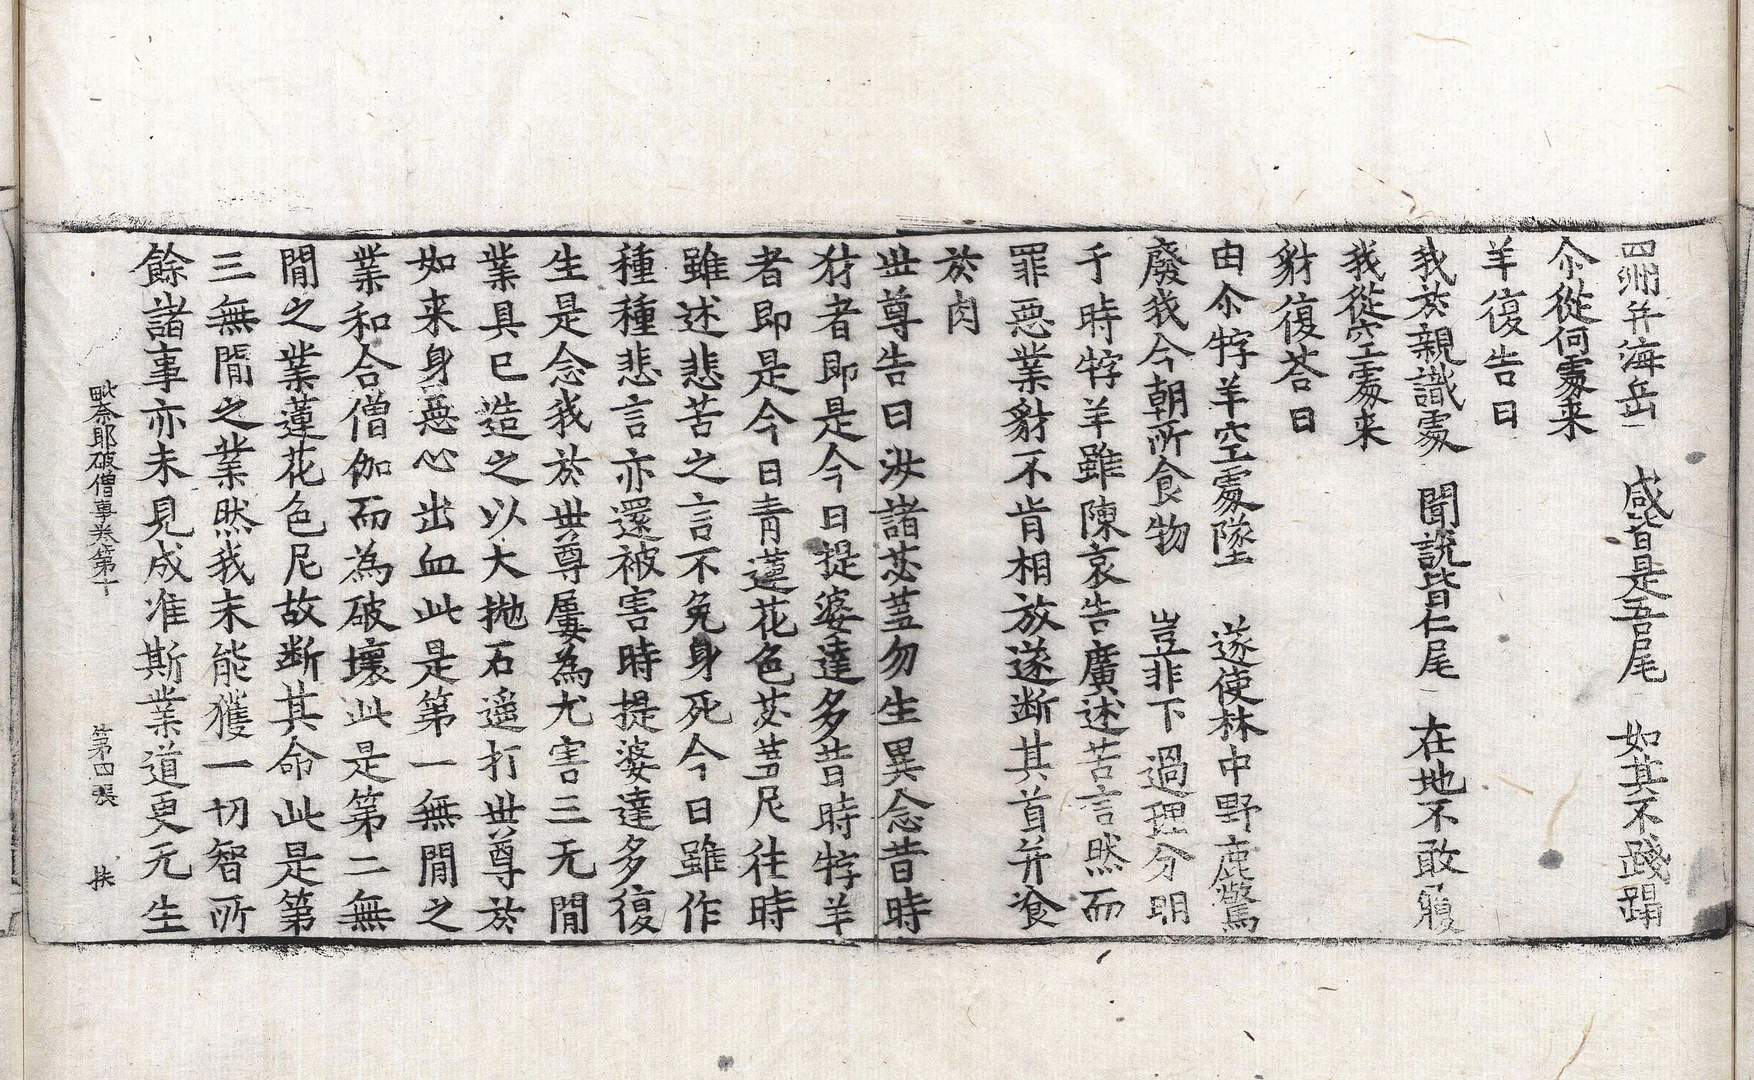 四洲并海岳　咸皆是吾尾　如其不踐蹋
尒從何處来
羊復告曰
我於親識處　聞說皆仁尾　在地不敢履
我從空處来
豺復荅曰
由尒牸羊空處墜　遂使林中野鹿驚
廢我今朝所食物　豈非下過理分明
于時牸羊雖陳哀告廣述苦言然而
罪惡業豺不肯相放遂断其首并飡
於肉
世尊告曰汝諸苾芻勿生異念昔時
犲者即是今日提婆達多昔時牸羊
者即是今日青蓮花色苾芻尼往時
雖述悲苦之言不免身死今日雖作
種種悲言亦還被害時提婆達多復
生是念我於世尊屢為尤害三无閒
業具已造之以大拋石遥打世尊於
如来身惡心出血此是第一無閒之
業和合僧伽而為破壞此是第二無
閒之業蓮花色尼故断其命此是第
三無閒之業然我未能獲一切智所
餘諸事亦未見成准斯業道更无生
毗奈耶破僧事卷第十　第四張　扶